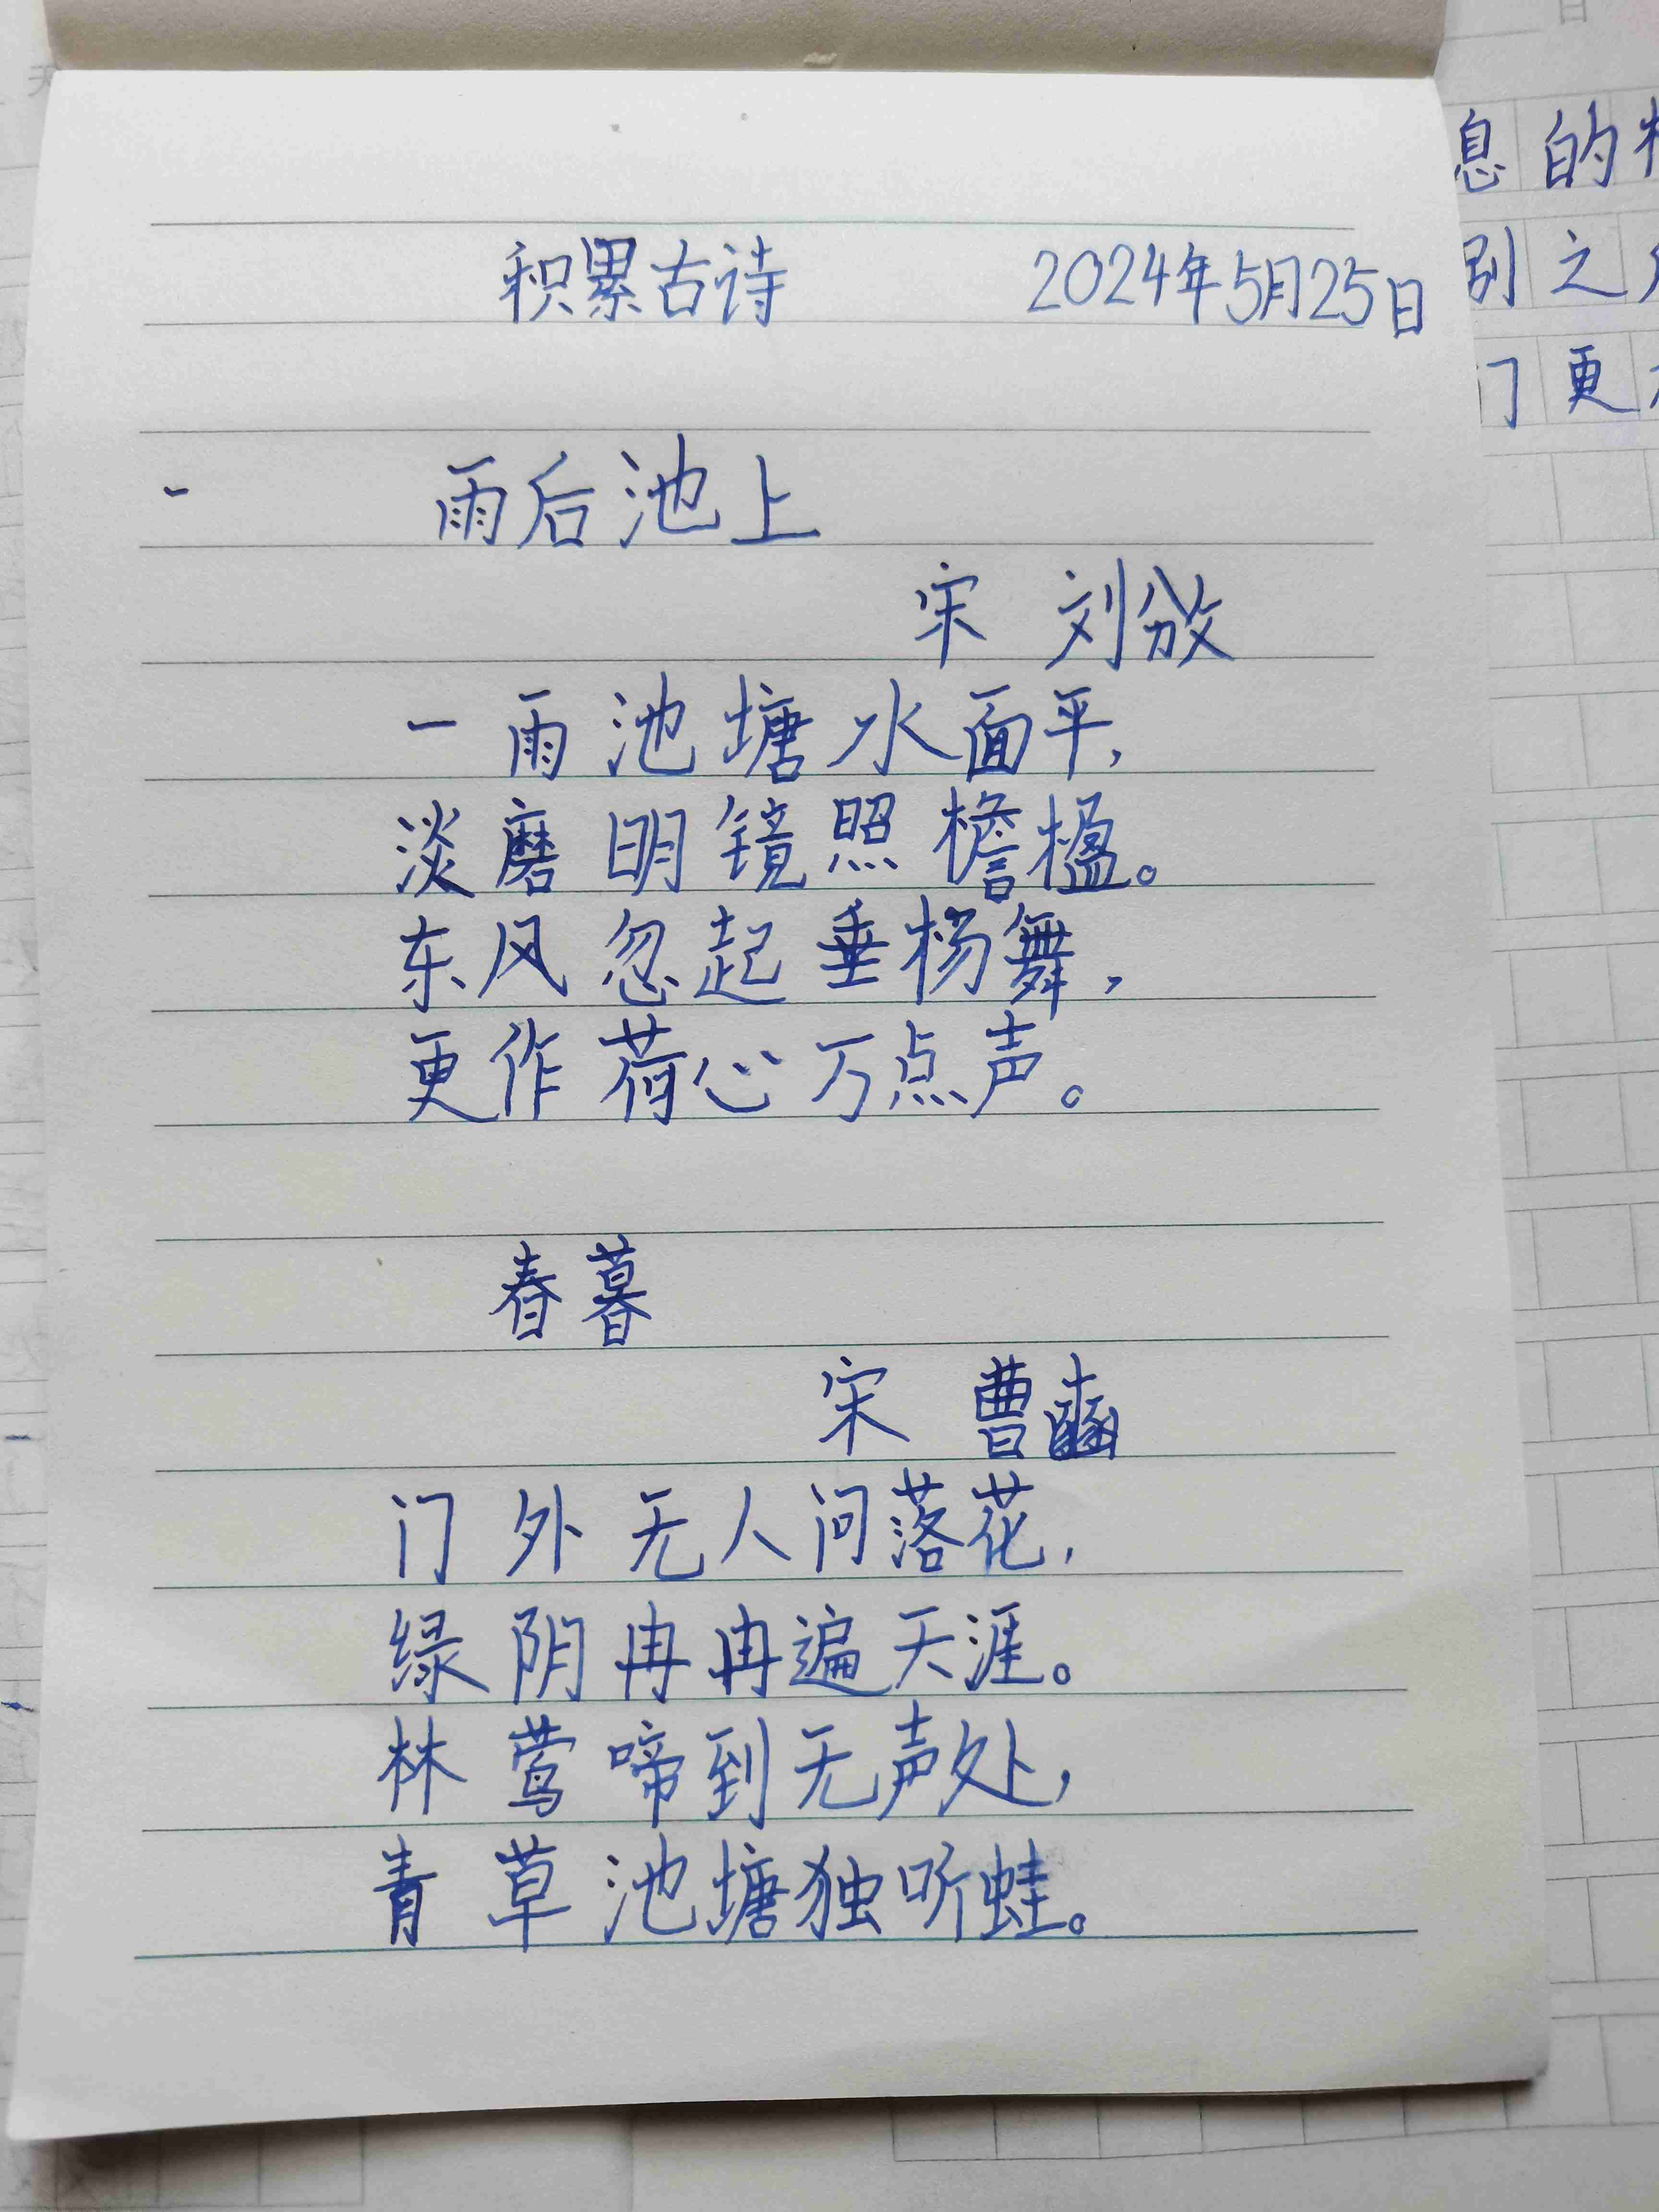 积累古诗 2024年5月25日
雨后池上
宋 刘攽
一雨池塘水面平,
淡磨明镜照檐楹。
东风忽起垂杨舞,
更作荷心万点声。
春暮
宋 曹豳
门外无人问落花,
绿阴冉冉遍天涯。
林莺啼到无声处,
青草池塘独听蛙。
息的
别之
们更